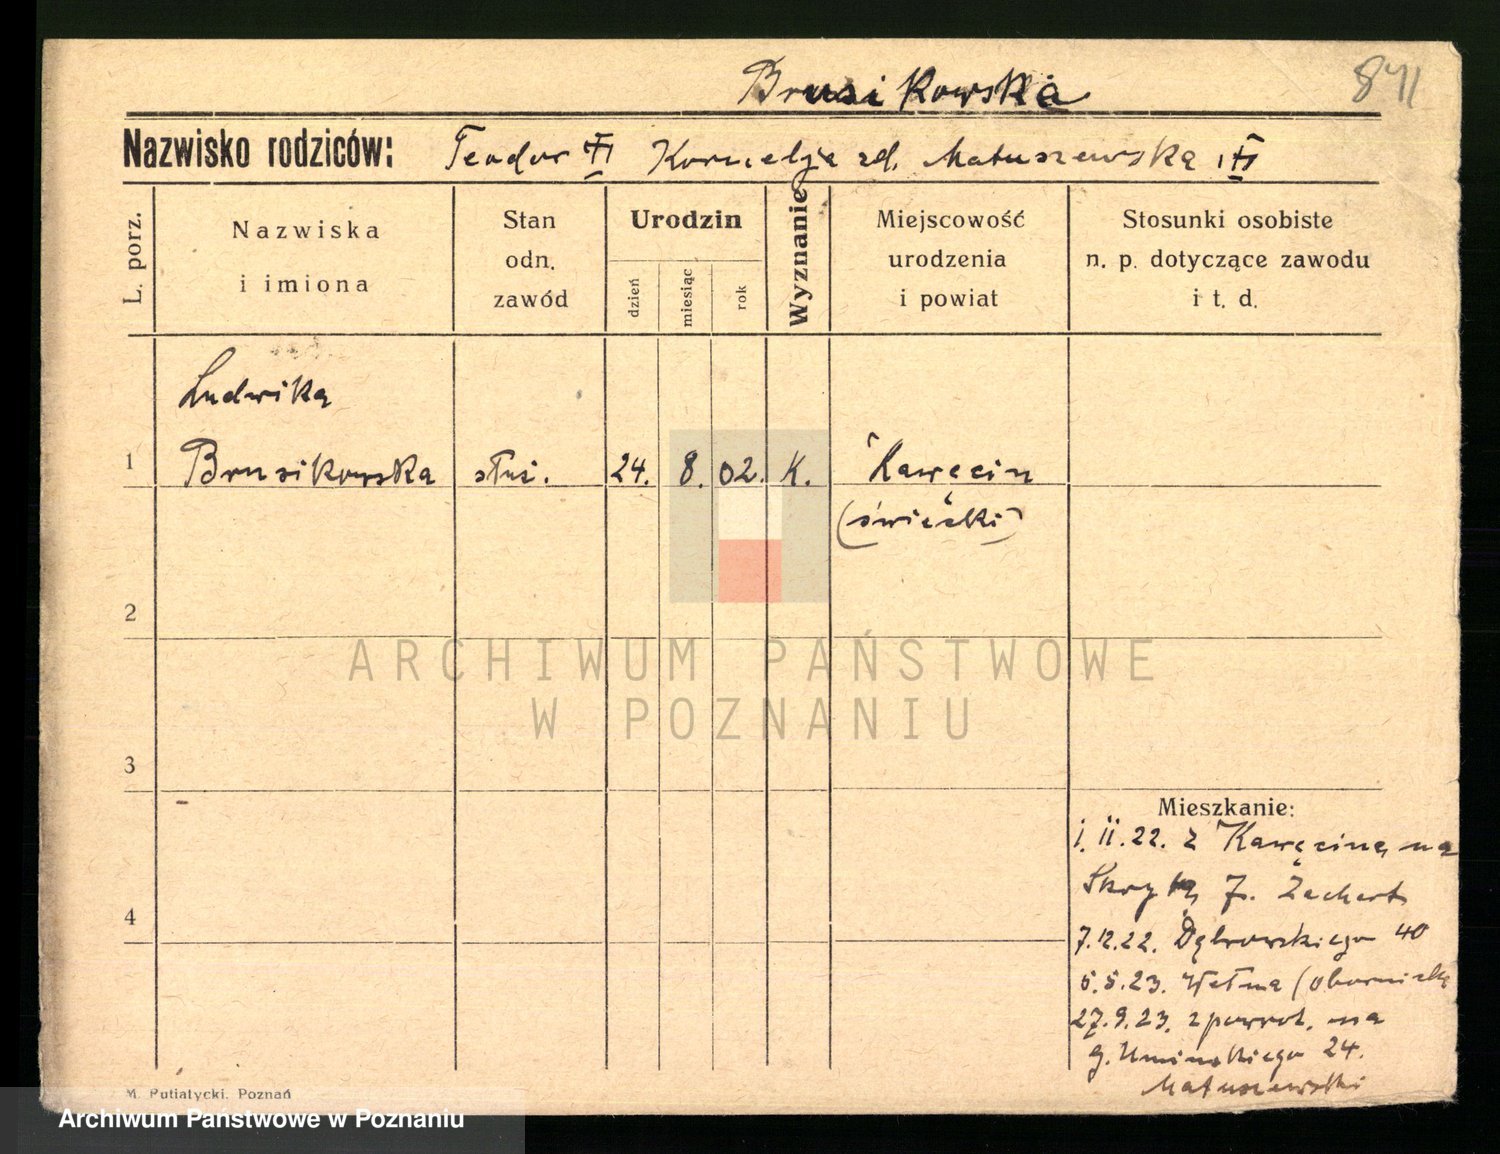 Brusikowska 871
Nazwisko rodziców: Teodor Kornelja zd. Matuszewska
L. porz.
Nazwiska
i imiona
Stan
odn.
zawód
Urodzin
dzień
miesiąc
rok
Wyznanie
Miejscowość
urodzenia
i powiat
Stosunki osobiste
n. p. dotyczące zawodu
i t. d.
Ludwika
1 Brusikowska służ. 24. 8. 02. K. Kawęcin
(świecki)
2
3
4
ARCHIWUM PAŃSTWOWE
W POZNANIU
Mieszkanie:
1. 11. 22. z Kawęcina na
J. Zachert
7.12.22. Dąbrowskiego 40
5.5.23. Wełna (obornicki
27.9.23. zpowrot. na
g. Umińskiego 24.
Matuszewski
M. Putiatycki. Poznań
Archiwum Państwowe w Poznaniu